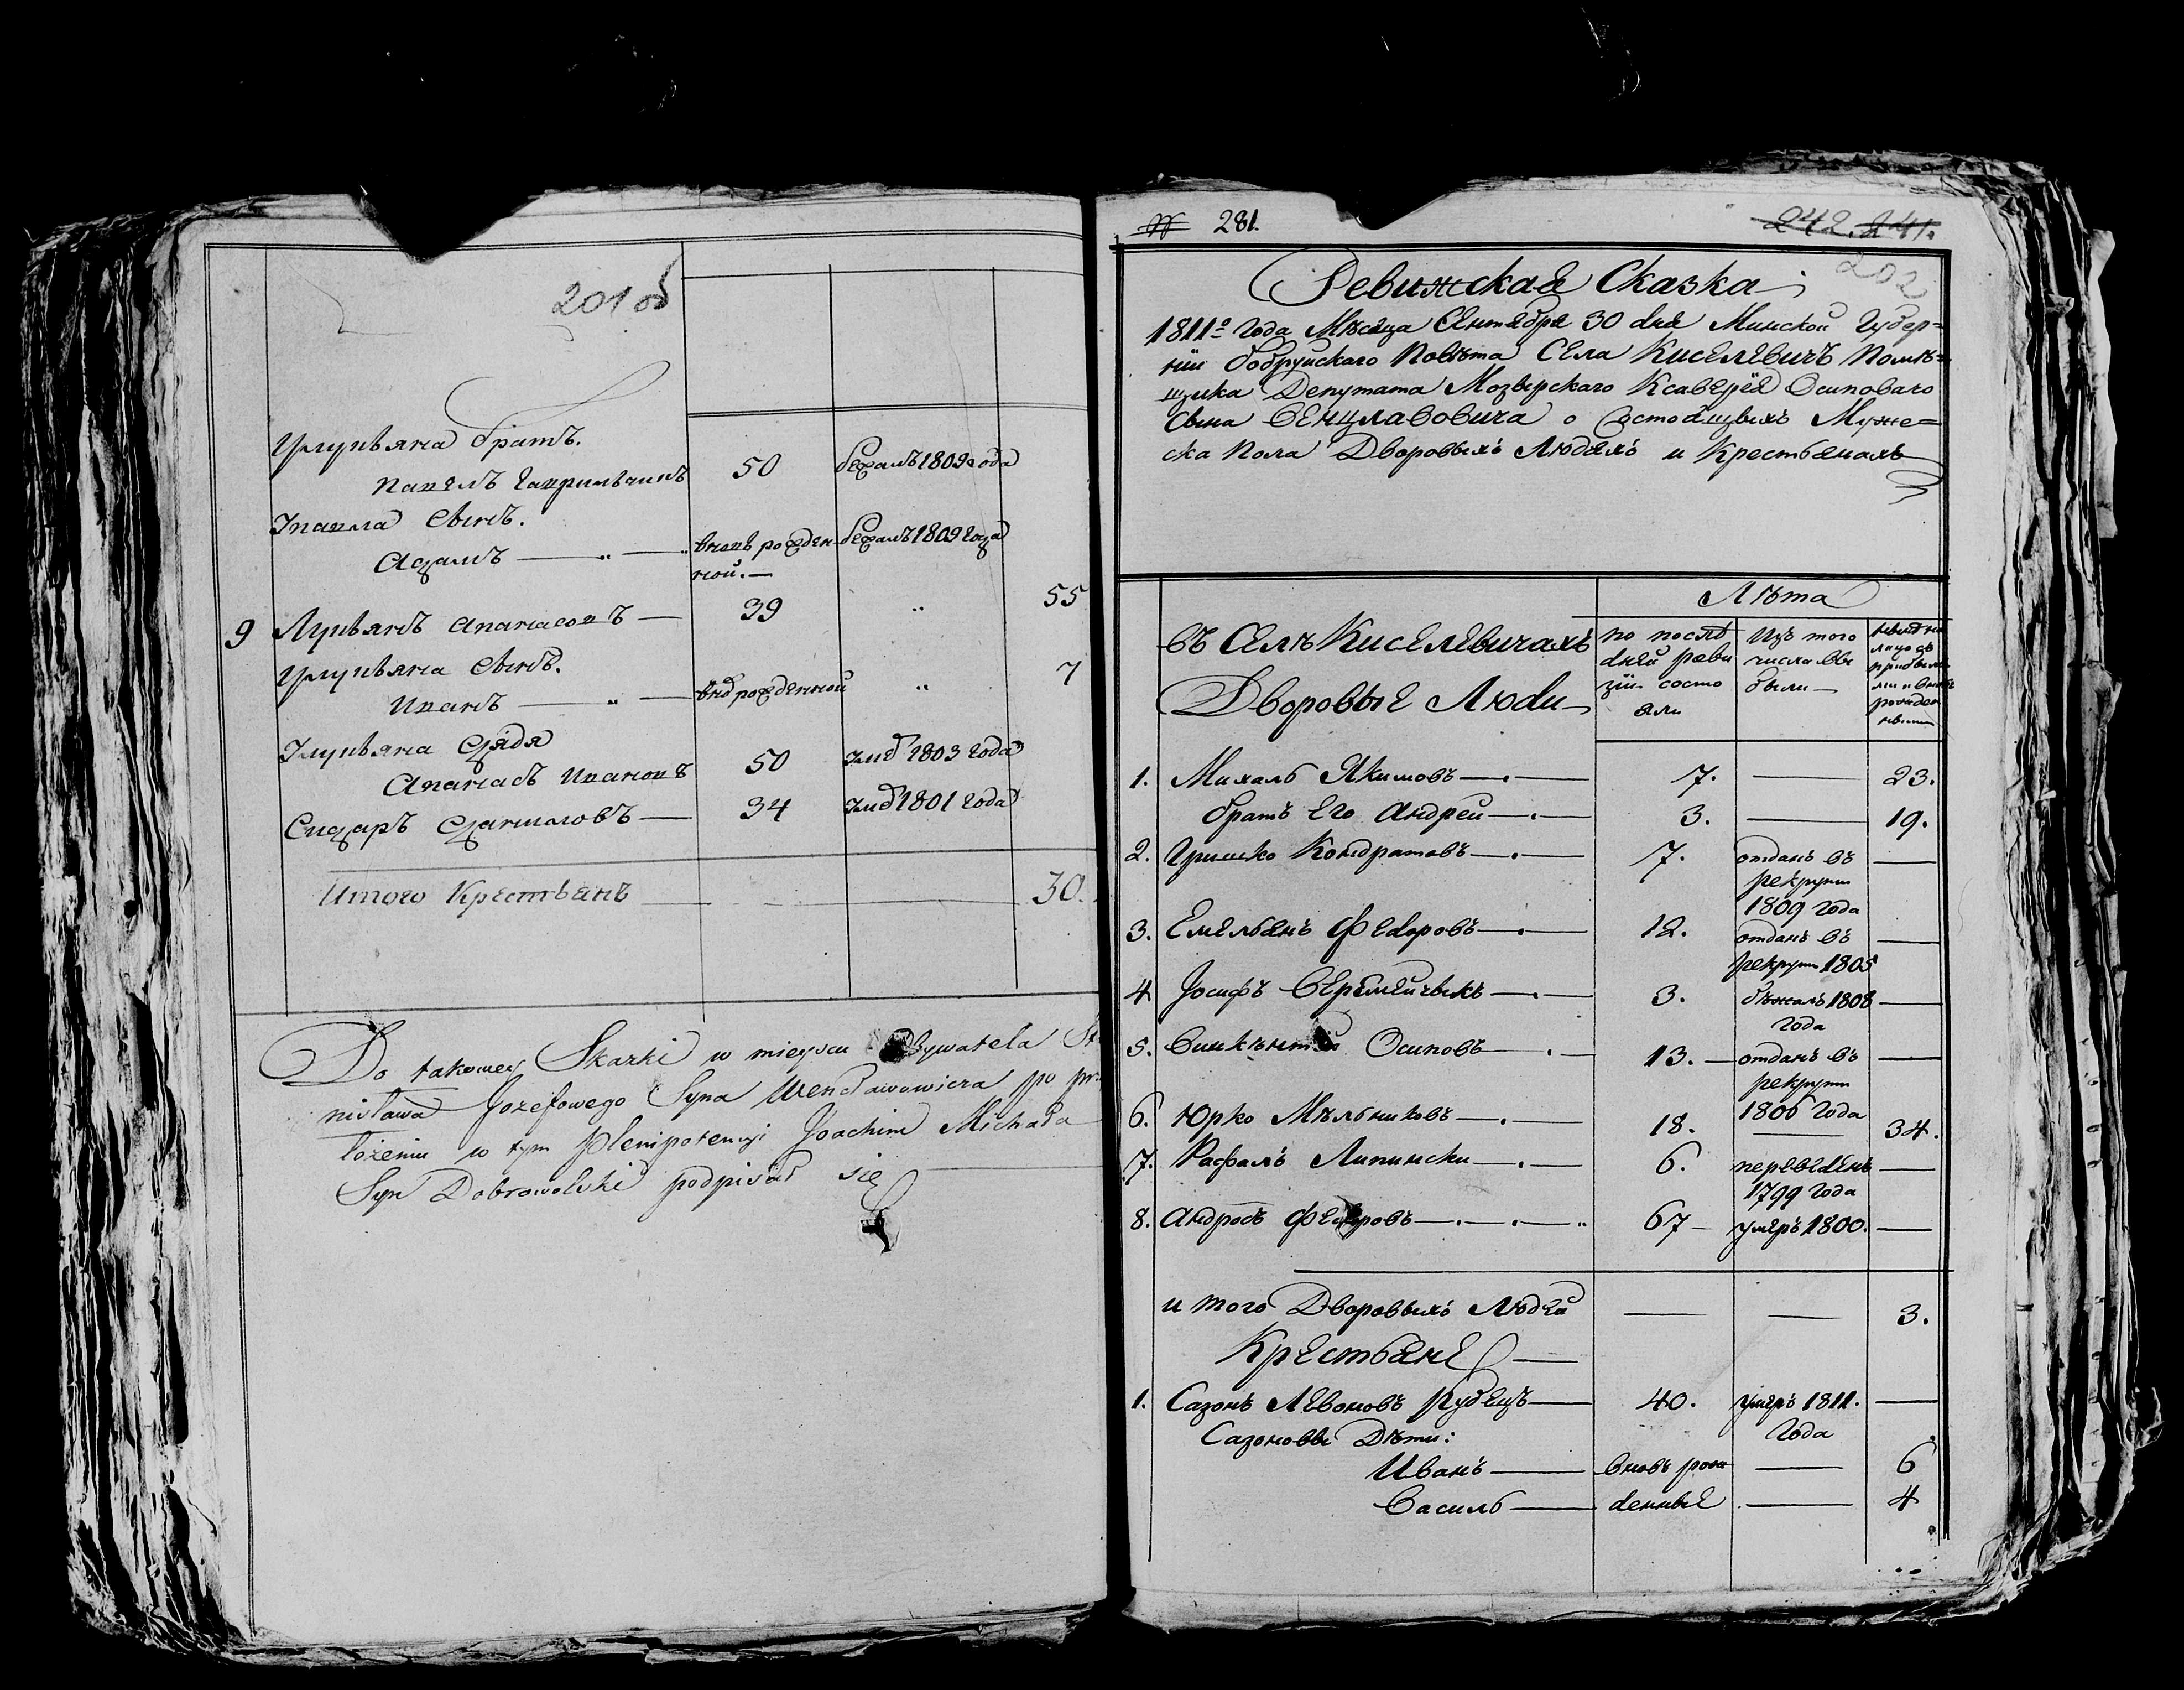 201 об
брат.
50 бежалъ 1809 года
сынъ.
Адамъ — " — вновь рожден- бежалъ 1809 года
ной. —
9 Лукьянъ Апанасовъ — 39 " 55
сынъ.
Иванъ — " — внов рожденной " 7
дядя
Апанасъ Ивановъ 50 умер 1803 года
Сидаръ Даниловъ — 34 умер 1801 года
Итого Крестьянъ 30.
Do takowey Skazki w mieyscu Obywatela St
nisława Jozefowego Syna Wencławowicza po
łożeniu w tym Plenipotencyi Joachim Michała
Syn Dobrowolski podpisał się
№ 281. 242. 241.
202
Ревижская Сказка
1811го Года Мѣсяца Сентября 30 дня Минской Губер=
нїи Бобруйскаго Повѣта Села Киселевичъ Помѣ=
щика Депутата Мозырскаго Ксаверїя Осиповаго
Сына Венцлавовича о Состоящихъ Муже=
ска Пола Дворовыхъ Людяхъ и Крестьянахъ
Лѣта
въ Селѣ Киселевичахъ
Дворовые Люди
по послѣ
дней реви
зїи состо
яли
Изъ того
числа вы
были
1. Михалъ Якимовъ — 7. — 23.
братъ Его Андрей — 3. — 19.
2. Гришко Кондратовъ — 7. отданъ въ —
рекруты
1809 года
3. Емельянъ Федоровъ — 12. отданъ въ —
рекруты 1805
4 Іосифъ — 3. бѣжалъ 1808 —
года
5. Осиповъ — 13. — отданъ въ —
рекруты
1806 года
6. Юрко Мѣльниковъ — 18. — 34.
7. Рафалъ Липински — 6. переведенъ —
1799 года
8. Андрось Федоровъ — 67 — умеръ 1800. —
и того Дворовыхъ Людей — — 3.
Крестьяне —
1. Сазонъ Левоновъ Рубецъ — 40. умеръ 1811. —
Года
Сазоновы Дѣти:
Иванъ — вновь рож — 6
Василь — денные — 4